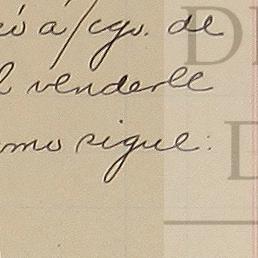 eó a/cgo. de
l venderle
omo sigue:
D
D